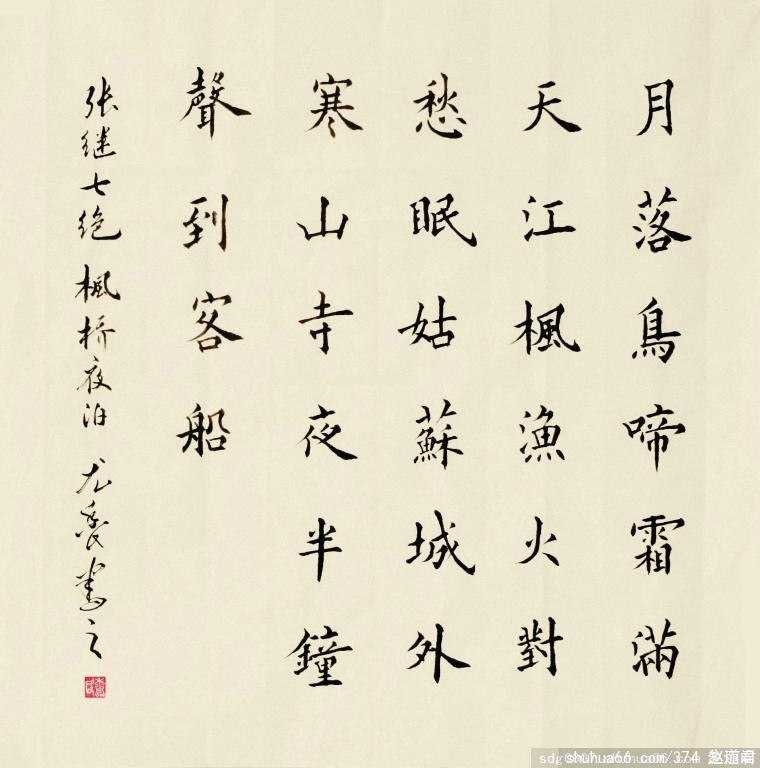 月落烏啼霜滿
天江楓漁火對
愁眠姑蘇城外
寒山寺夜半鐘
聲到客船
张继七绝 楓桥夜泊
shuhua66 com/374